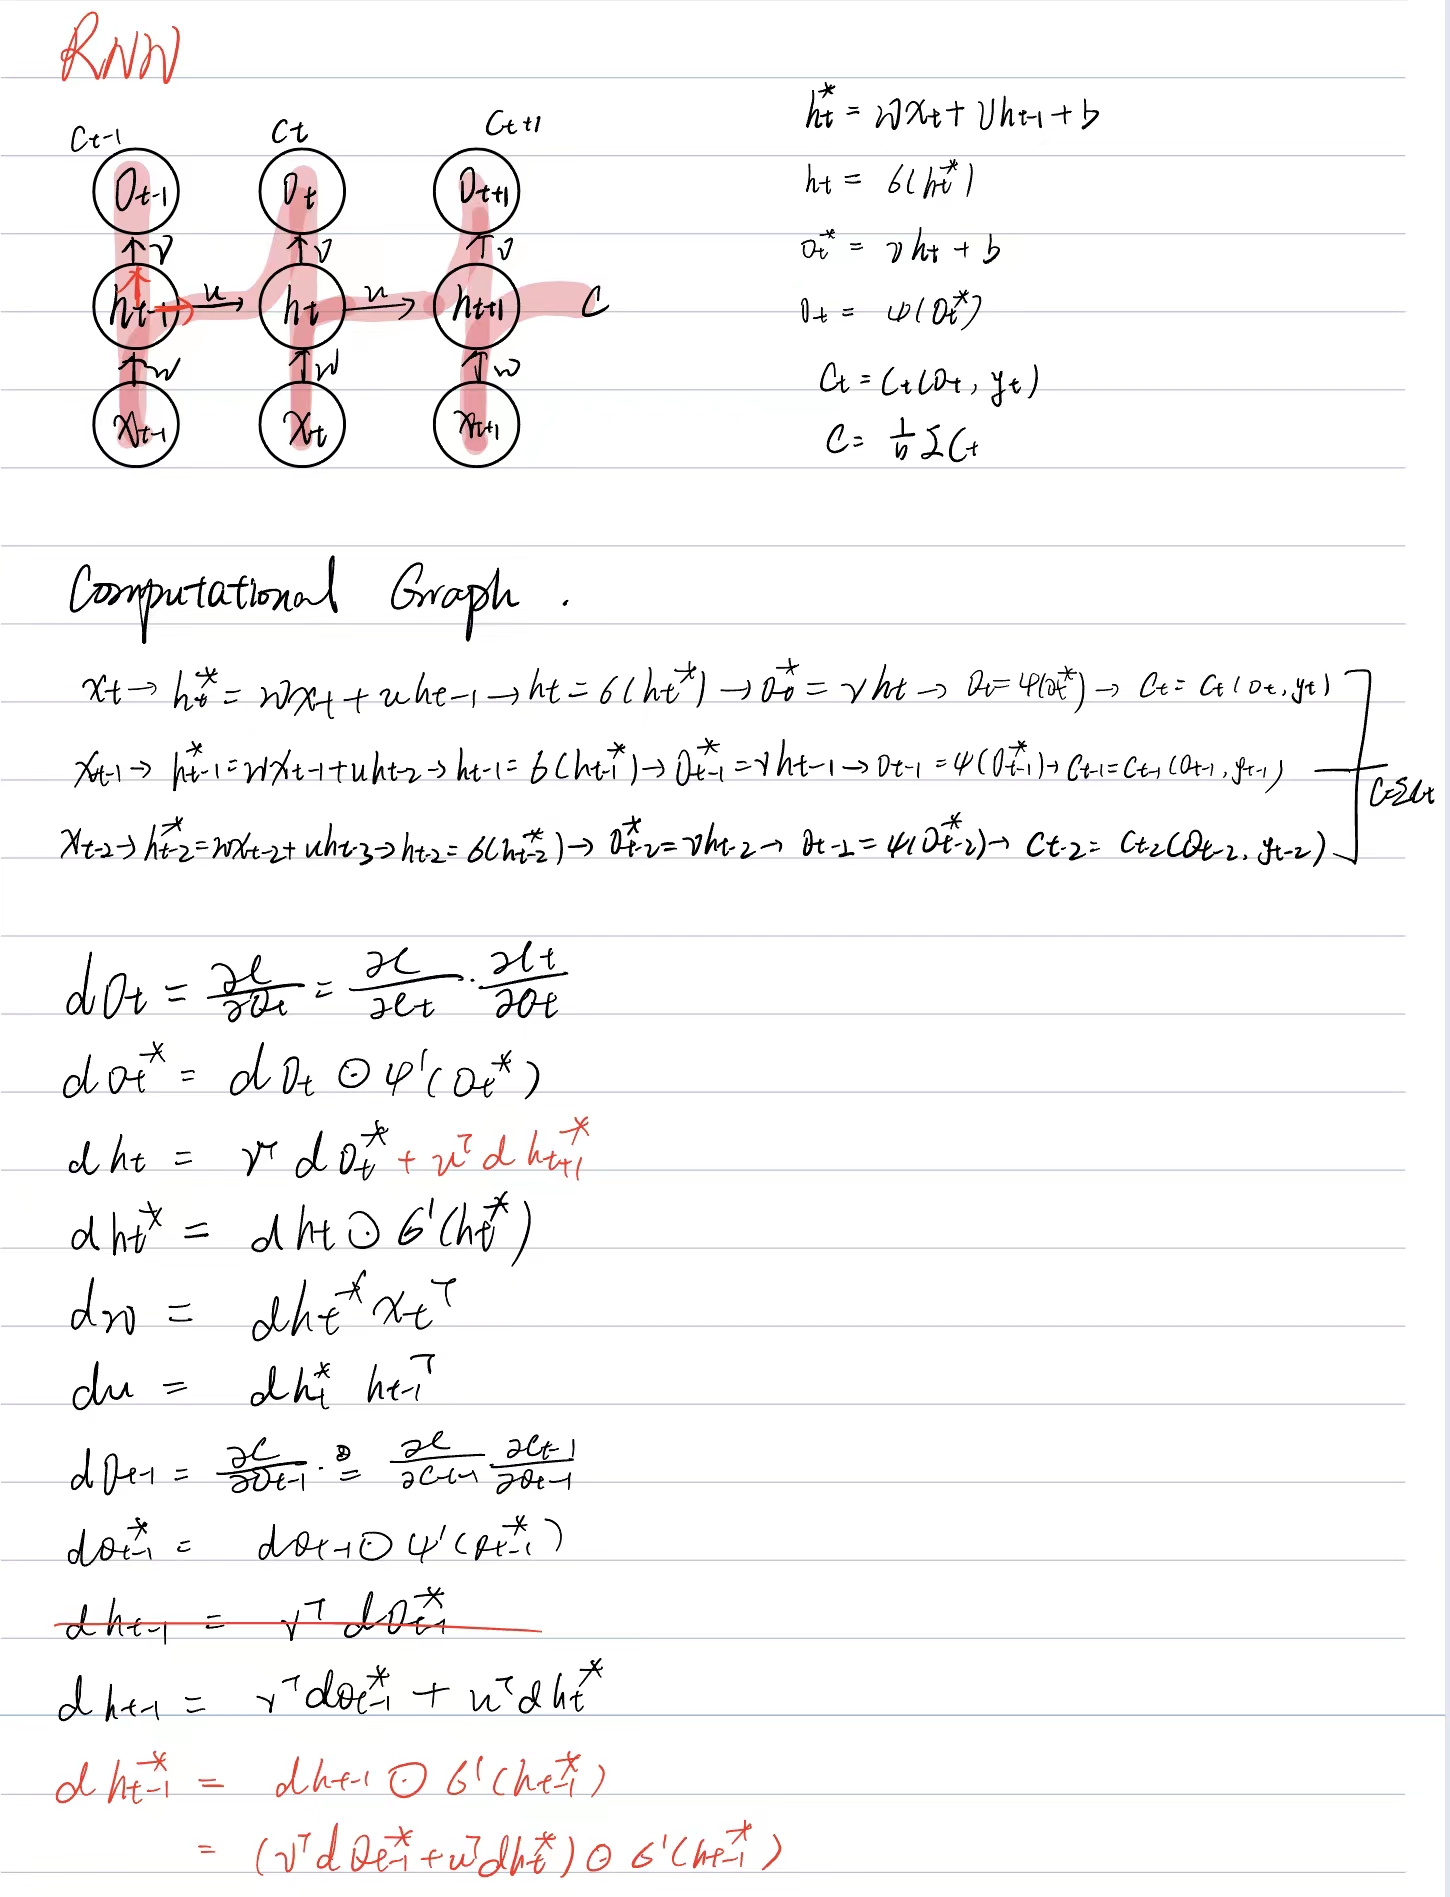 RNN
C_{t-1} C_t C_{t+1}
O_{t-1} O_t O_{t+1}
V V V
h_{t-1} u h_t u h_{t+1} C
W W W
x_{t-1} x_t x_{t+1}
h_t^* = Wx_t + Uh_{t-1} + b
h_t = σ(h_t^*)
o_t^* = Vh_t + b
O_t = φ(O_t^*)
C_t = C_t(O_t, y_t)
C = 1/b ΣC_t
Computational Graph .
x_t → h_t^* = Wx_t + uh_{t-1} → h_t = σ(h_t^*) → O_t^* = Vh_t → O_t = φ(O_t^*) → C_t = C_t(O_t, y_t)
x_{t-1} → h_{t-1}^* = Wx_{t-1} + uh_{t-2} → h_{t-1} = σ(h_{t-1}^*) → O_{t-1}^* = Vh_{t-1} → O_{t-1} = φ(O_{t-1}^*) → C_{t-1} = C_{t-1}(O_{t-1}, y_{t-1})
C=ΣC_t
x_{t-2} → h_{t-2}^* = Wx_{t-2} + uh_{t-3} → h_{t-2} = σ(h_{t-2}^*) → O_{t-2}^* = Vh_{t-2} → O_{t-2} = φ(O_{t-2}^*) → C_{t-2} = C_{t-2}(O_{t-2}, y_{t-2})
dO_t = ∂C/∂O_t = ∂C/∂C_t · ∂C_t/∂O_t
dO_t^* = dO_t ⊙ φ'(O_t^*)
dh_t = V^T dO_t^* + u^T dh_{t+1}^*
dh_t^* = dh_t ⊙ σ'(h_t^*)
dW = dh_t^* x_t^T
du = dh_t^* h_{t-1}^T
dO_{t-1} = ∂C/∂O_{t-1} · = ∂C/∂C_{t-1} ∂C_{t-1}/∂O_{t-1}
dO_{t-1}^* = dO_{t-1} ⊙ φ'(O_{t-1}^*)
dh_{t-1} = V^T dO_{t-1}^*
dh_{t-1} = V^T dO_{t-1}^* + u^T dh_t^*
dh_{t-1}^* = dh_{t-1} ⊙ σ'(h_{t-1}^*)
= (V^T dO_{t-1}^* + u^T dh_t^*) ⊙ σ'(h_{t-1}^*)